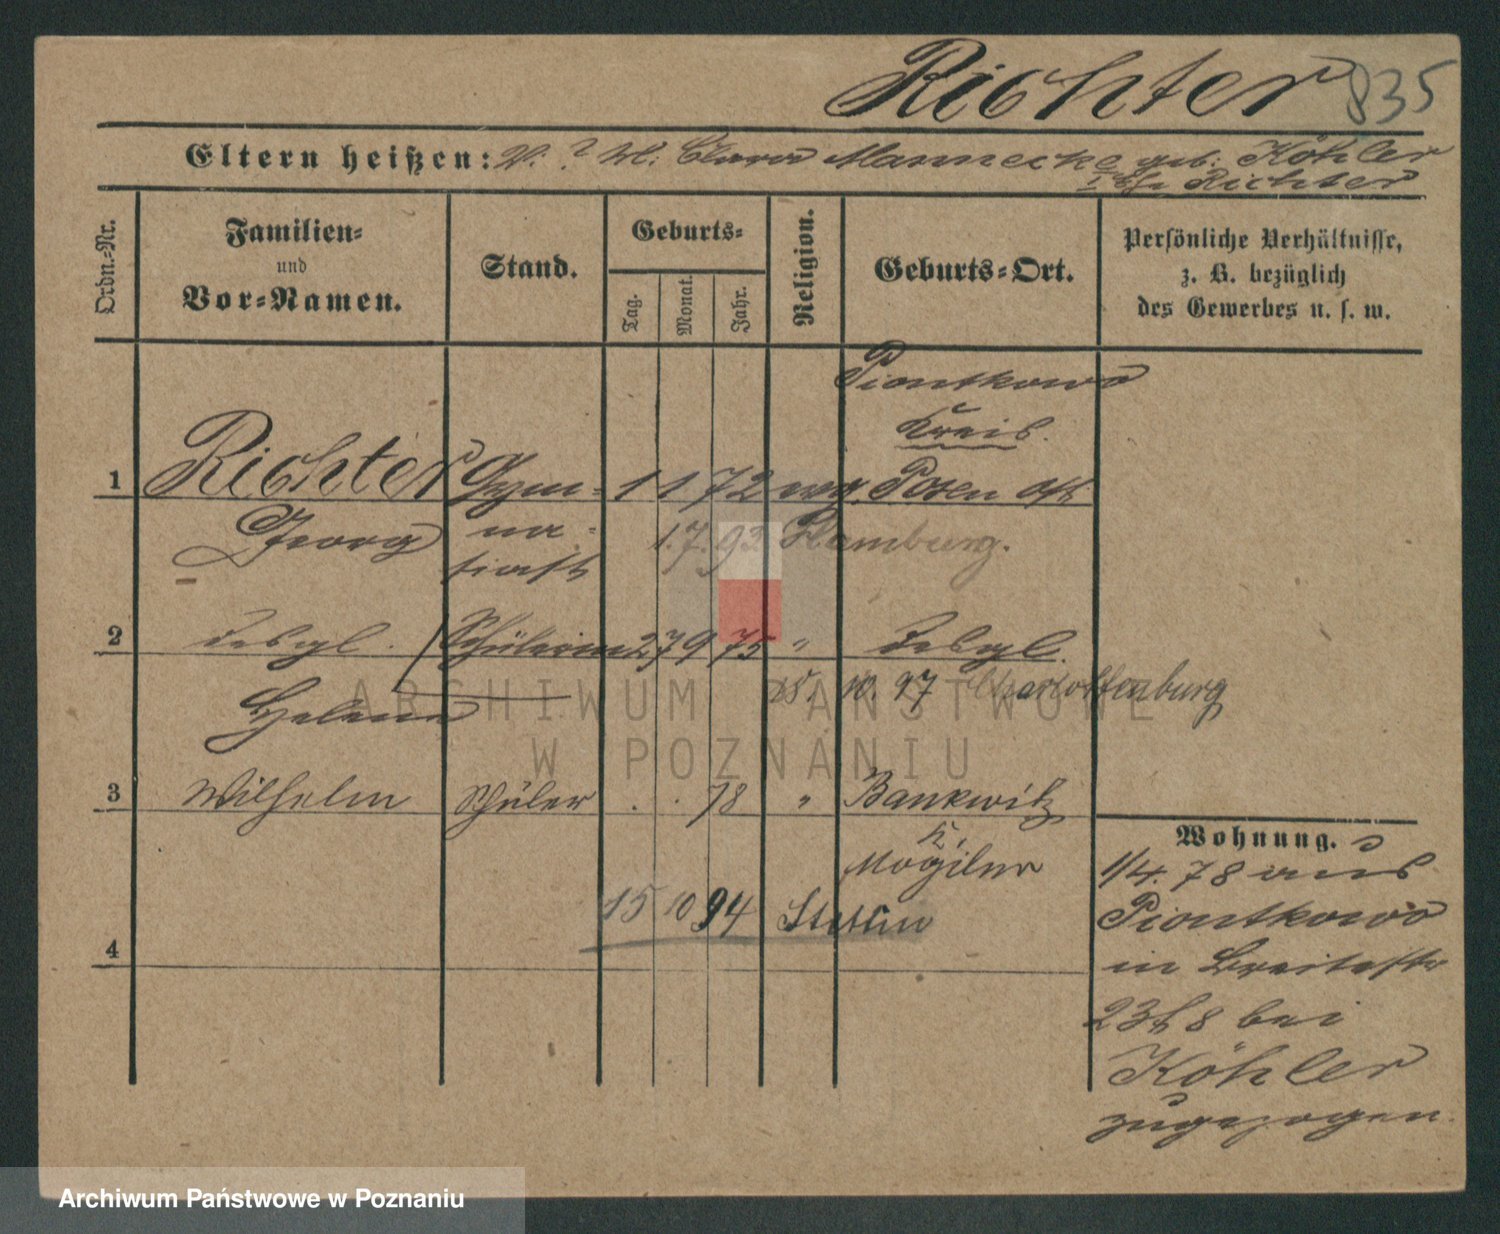 Richter 835
Eltern heißen: V. ? M. Clara Mannecke geb. Köhler
Richter
Ordn.-Nr.
Familien-
und
Vor-Namen.
Stand.
Geburts-
Tag.
Monat.
Jahr.
Religion.
Geburts-Ort.
Persönliche Verhältnisse,
z. B. bezüglich
des Gewerbes u. s. w.
Piontkowo
Kreis
1 Richter Gym- 1 1 72 evg. Posen
Georg na- 1. 7. 93. Hamburg.
siast
2 desgl. Schülerin 27 9 75 " desgl.
15. 10. 97 Charlottenburg
Helene
3 Wilhelm Schüler . . 78 " Bankwitz
K.
Mogilno
15 10 94 Stettin
4
Wohnung.
1/4. 78 aus
Piontkowo
in Breitestr
23/8 bei
Köhler
zugezogen.
ARCHIWUM PAŃSTWOWE
W POZNANIU
Archiwum Państwowe w Poznaniu